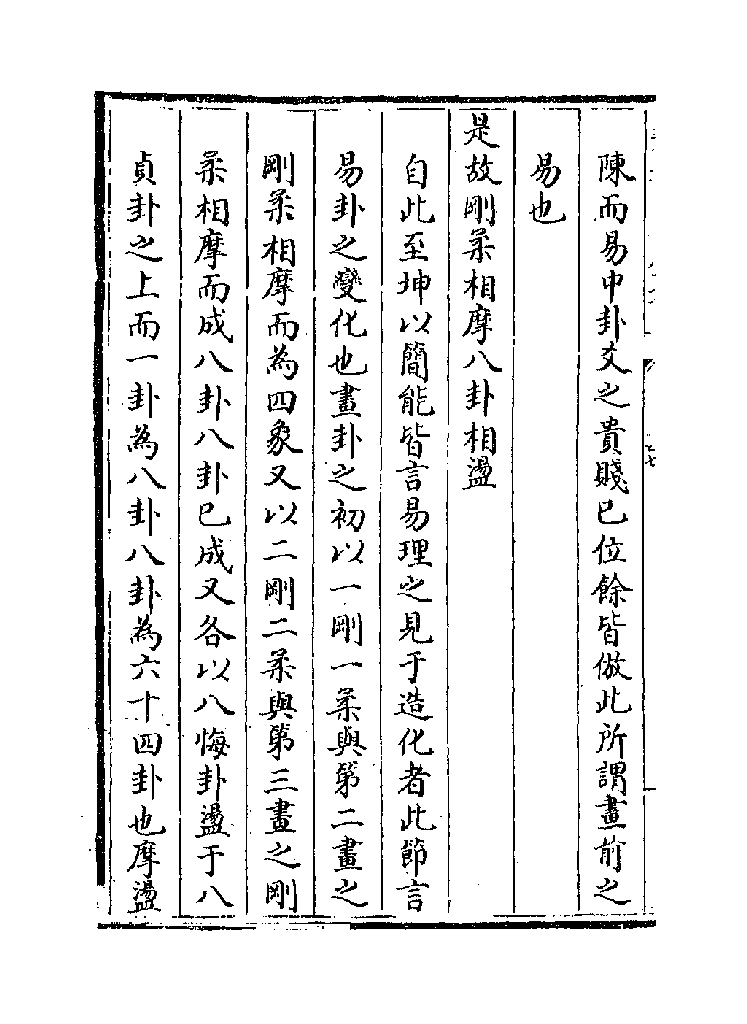 陳而易中卦爻之貴賤已位餘皆倣此所謂畫前之
易也
是故剛柔相摩八卦相盪
自此至坤以簡能皆言易理之見于造化者此節言
易卦之變化也畫卦之初以一剛一柔與第二畫之
剛柔相摩而為四象又以二剛二柔與第三畫之剛
柔相摩而成八卦八卦已成又各以八悔卦盪于八
貞卦之上而一卦為八卦八卦為六十四卦也摩盪